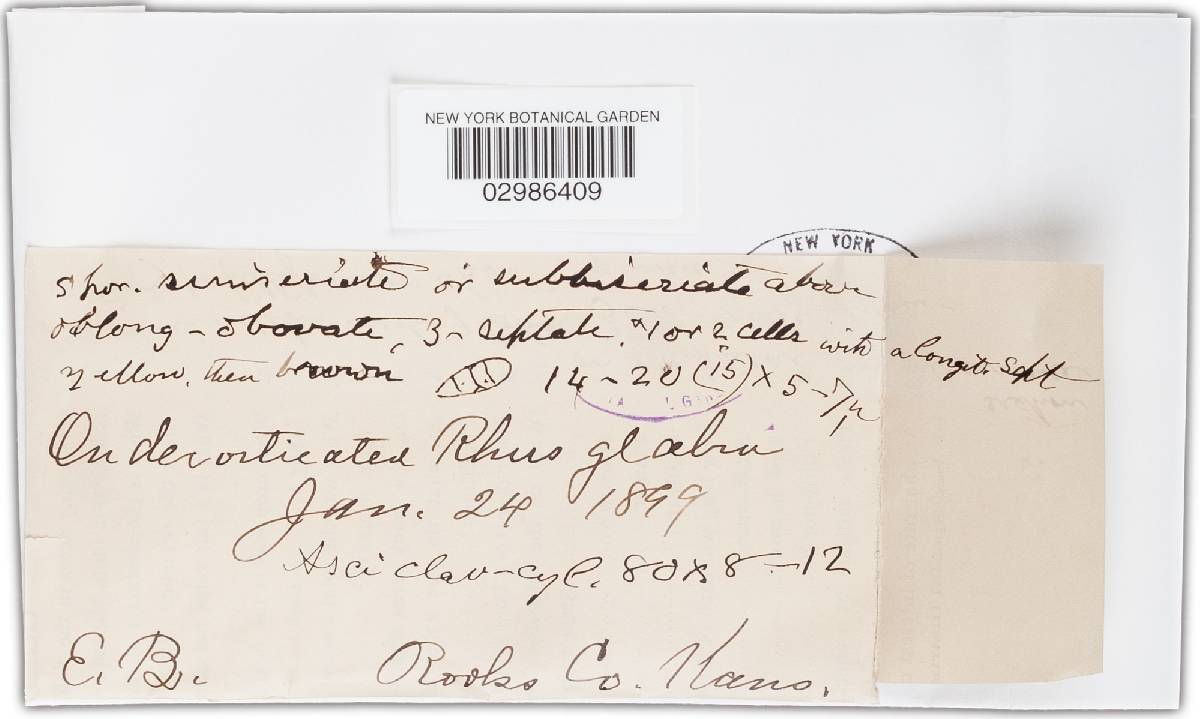 NEW YORK BOTANICAL GARDEN
02986409
NEW YORK
spor. uniseriate or subbiseriate above
oblong-obovate, 3-septate, & 1 or 2 cells with a longit. sept
yellow, then brown 14-20 (15) x 5-7µ
On decorticated Rhus glabra
Jan. 24 1899
Asci clav-cyl. 80 x 8-12
E. B. Rooks Co. Kans.